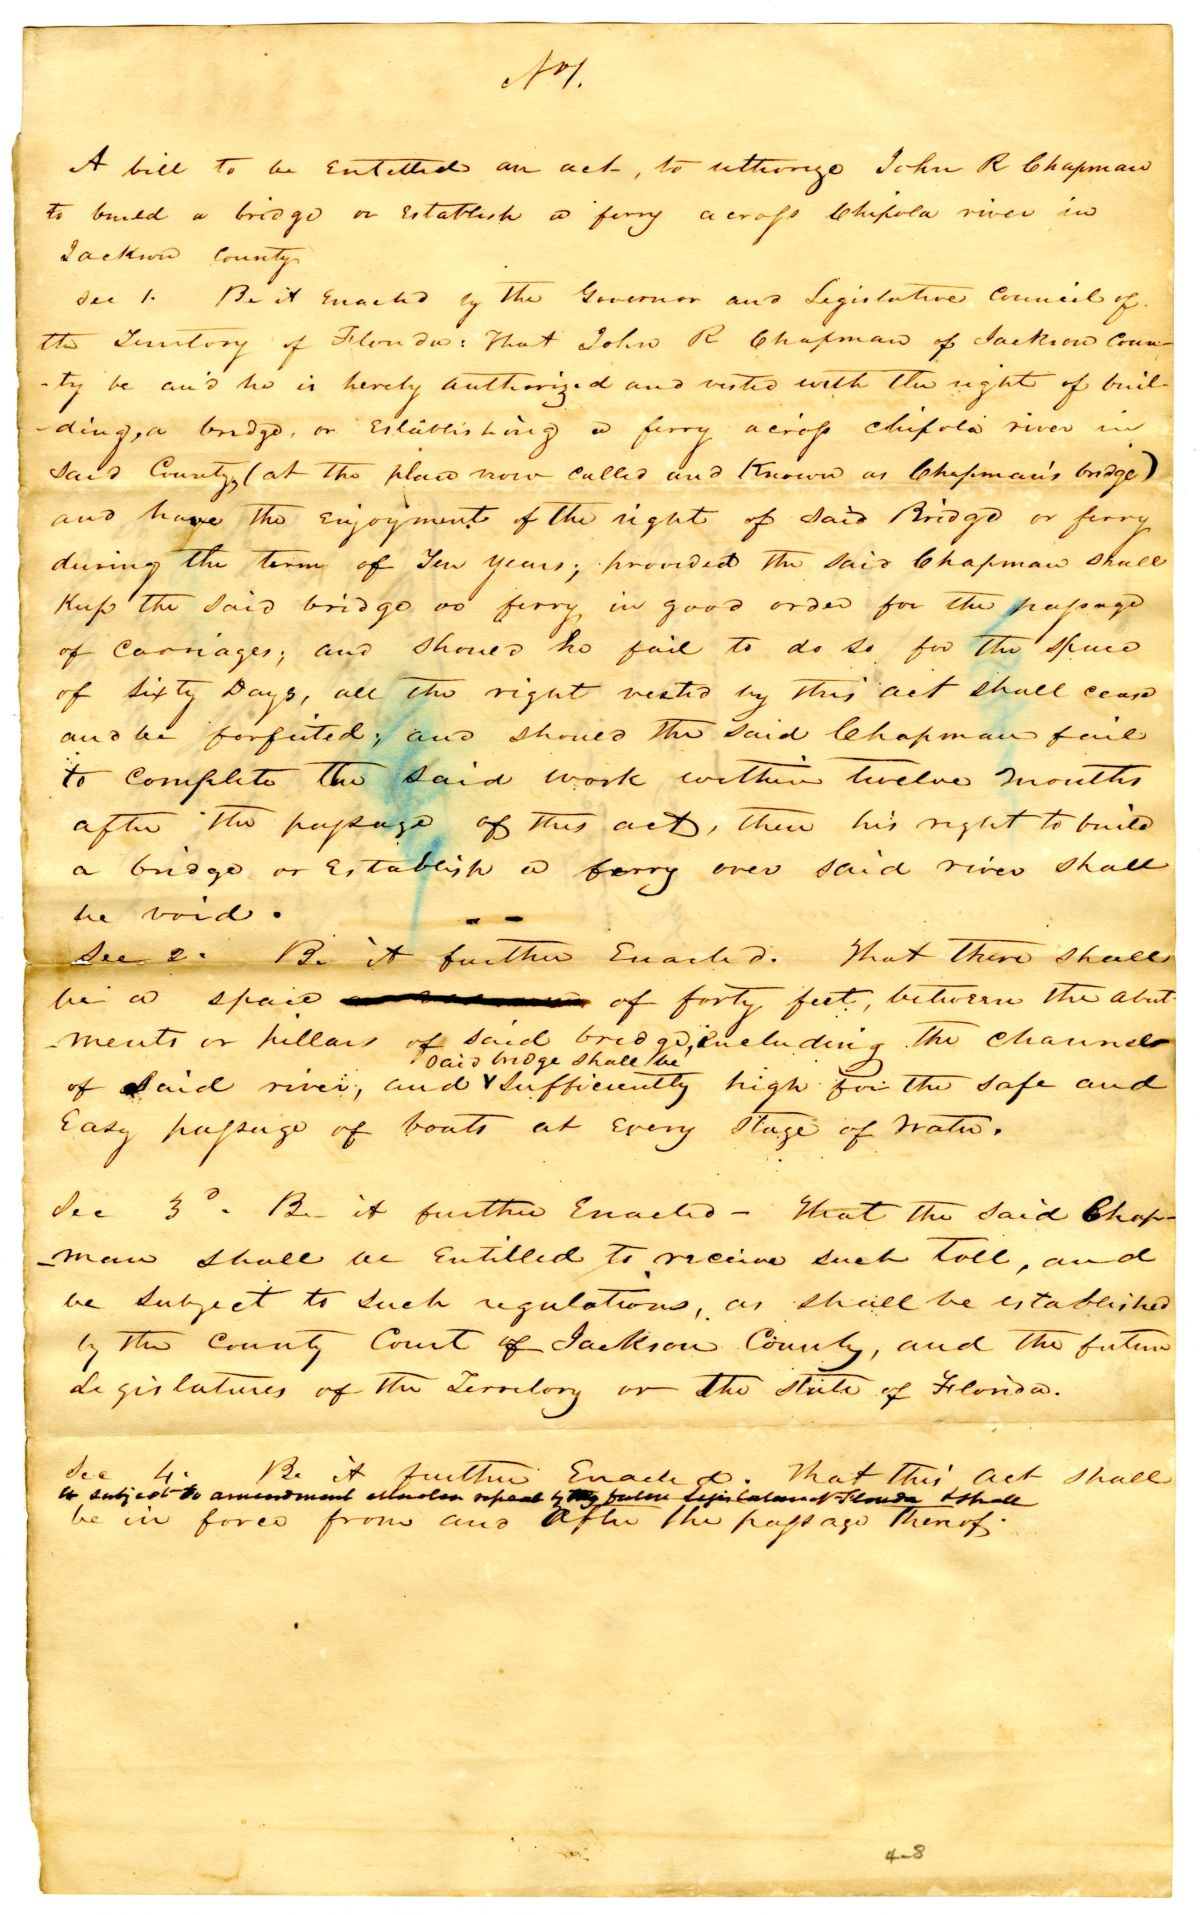 No 1.
A bill to be Entetled an act, to uthorize John R Chapman
to build a bridge or Establish a ferry across Chipola river in
Jackson County
Sec 1. Be it Enacted by the Governor and Legislative Council of
the Territory of Florida: That John R Chapman of Jackson Coun-
-ty be and he is hereby authorized and vested with the right of buil-
-ding, a bridge, or Establishing a ferry across chipola river in
said County, (at the place now called and Known as Chapman's bridge)
and have the Enjoyment of the right of said Bridge or ferry
during the term of Ten years; provided the said Chapman shall
Keep the said bridge or ferry in good order for the passage
of carriages; and should he fail to do so for the space
of sixty Days, all the right vested by this act shall cease
and be forfeited; and should the said Chapman fail
to complete the said work within twelve months
after the passage of this act, then his right to build
a bridge or Establish a ferry over said river shall
be void.
Sec 2. Be it further Enacted. That there shall
be a space of forty feet, between the abut-
-ments or pillars of said bridge, including the channel
said bridge shall be
of said river, and sufficiently high for the safe and
Easy passage of boats at Every stage of Water.
Sec 3d. Be it further Enacted - That the said Chap-
-man shall be Entilled to receive such toll, and
be subject to such regulations, as shall be established
by the County Court of Jackson County, and the future
Legislatures of the Territory or the state of Florida.
Sec 4. Be it further Enacted. That this act shall
be subject to amendment repeal by any future Legislature of Florida & shall
be in force from and After the passage thereof.
4-8